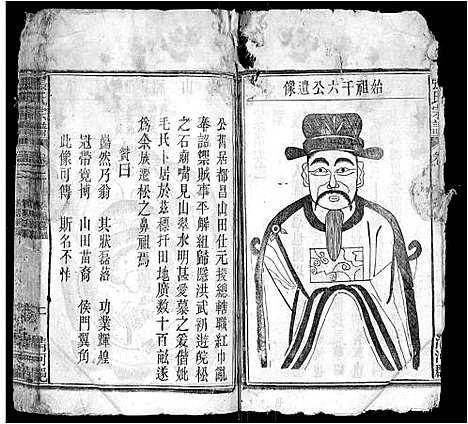 始祖千六公遺像
公舊居都昌山田仕元授總轄職紅巾亂
奉詔禦賊事平解組歸隱洪武初遊皖松
之石廟嘴見山翠水明甚愛慕之爰偕妣
毛氏卜居於茲標扦田地廣數十百畝遂
為余族遷松之鼻祖焉
贊曰
藹然乃翁 其狀磊落 功業輝煌
冠帶寬博 山田苗裔 侯門翼角
此像可傳 斯名不怍